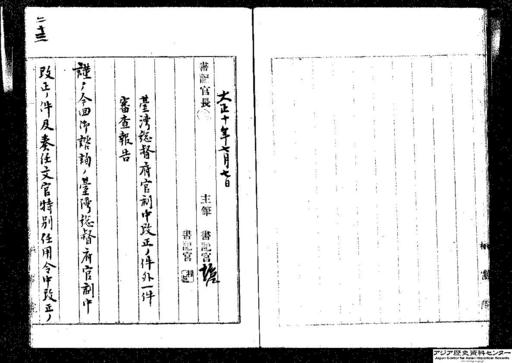 大正十年七月七日
書記官長
主筆 書記官
書記官
臺灣総督府官制中改正ノ件外一件
審査報告
謹テ今回御諮詢ノ臺灣総督府官制中
改正ノ件及奏任文官特別任用令中改正ノ
アジア歴史資料センター
Japan Center for Asian Historical Records